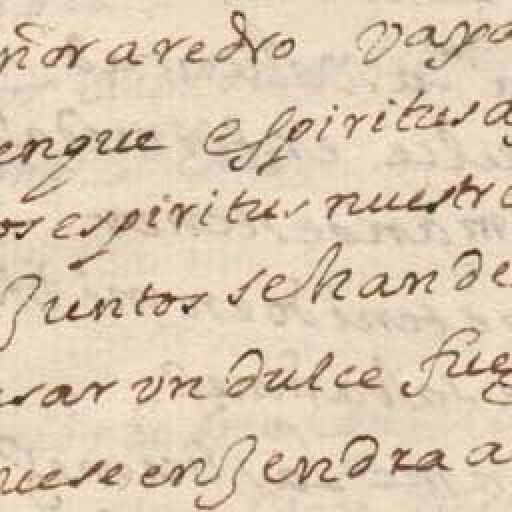 ñor aredro vaya
enque espiritus a
os espiritus nuestro
Juntos sehan de
sar un dulce fueg
uese enzendra a